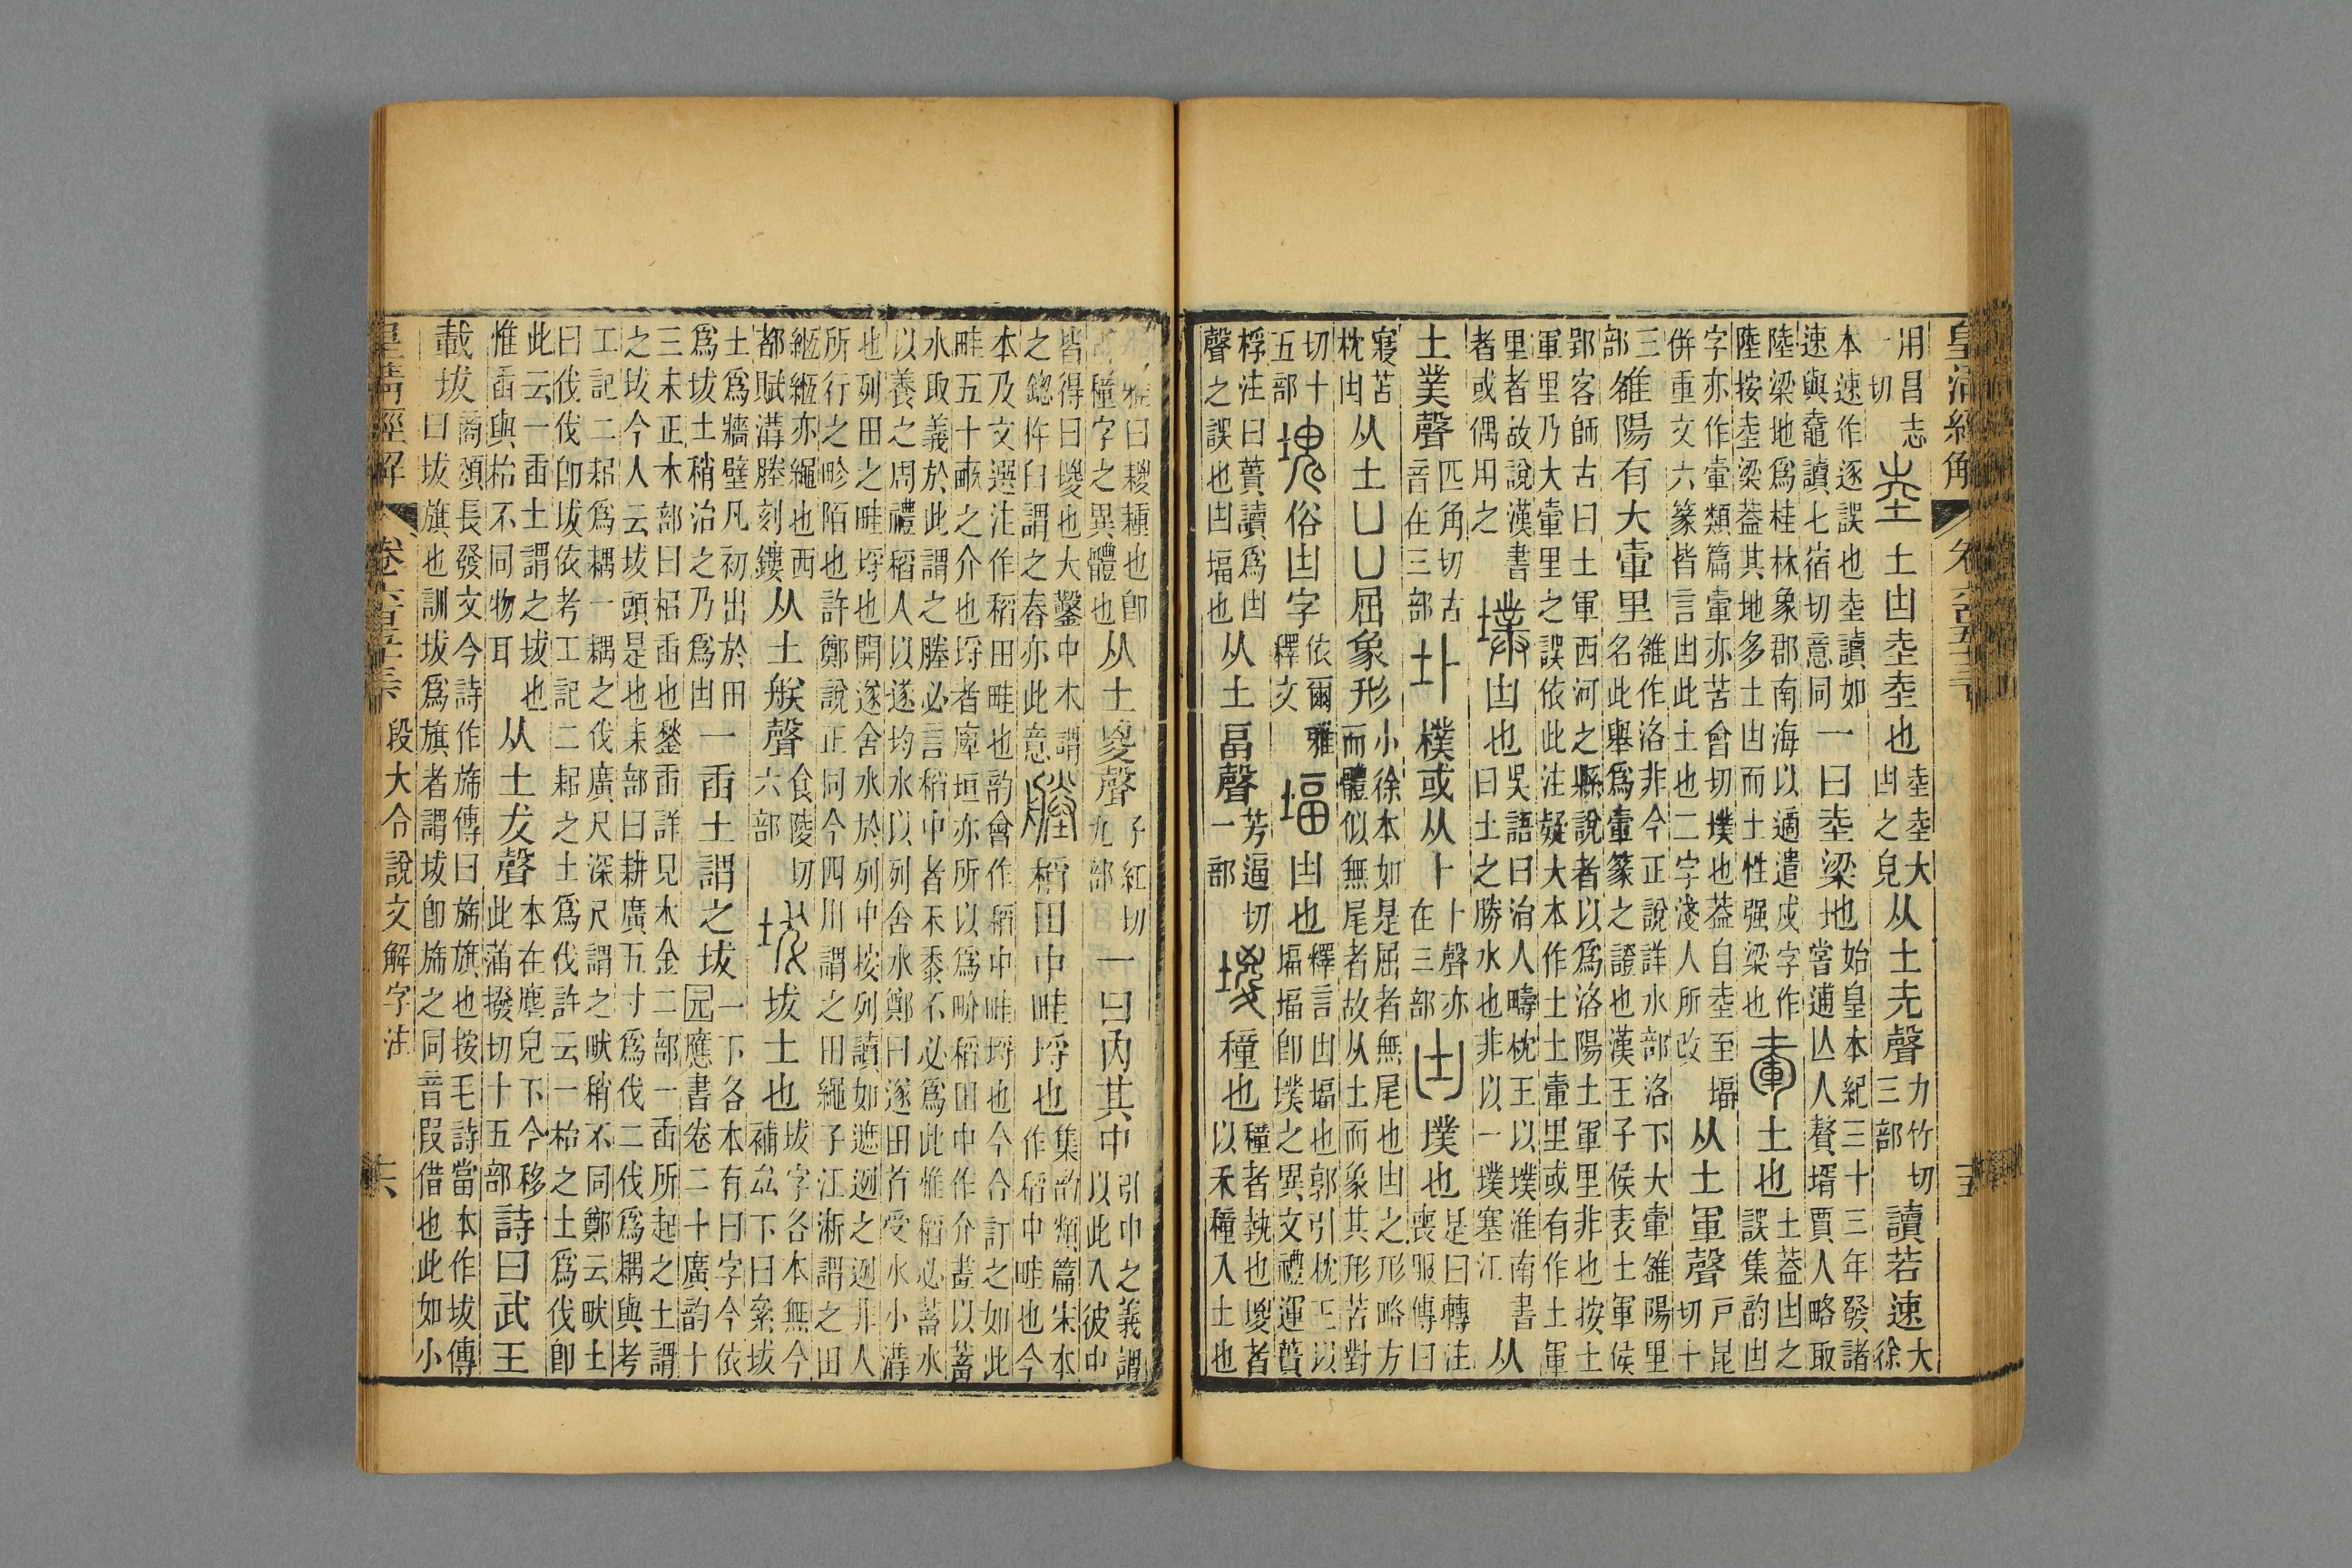 皇清經解 卷六百五十三 十五
用昌志一切 坴 土凷坴坴也 坴坴大凷之皃 从土圥聲 力竹切三部 讀若速 大徐
本速作逐誤也坴讀如速與鼀讀七宿切意同 一曰坴梁地 始皇本紀三十三年發諸嘗逋亾人贅壻賈人略取
陸梁地爲桂林象郡南海以適遣戍字作陸按坴梁葢其地多土凷而土性强梁也 㙔 土也 土葢凷之誤集韵凷
字亦作㙔類篇㙔亦苦會切墣也葢自坴至堛併重文六篆皆言凷此土也二字淺人所改 从土軍聲 戶昆切十
三部 雒陽有大㙔里 雒作洛非今正說詳水部洛下大㙔雒陽里名此舉爲㙔篆之證也漢王子侯表土軍侯
郢客師古曰土軍西河之縣說者以爲洛陽土軍里非也按土軍里乃大㙔里之誤依此注疑大本作土土㙔里或有作土軍
里者故說漢書者或偶用之 墣 凷也 吳語曰涓人疇枕王以墣淮南書曰土之勝水也非以一墣塞江 从
土菐聲 匹角切古音在三部 圤 墣或从卜 卜聲亦在三部 凷 墣也 是曰轉注喪服傳曰
寢苫枕凷 从土凵凵屈象形 小徐本如是屈者無尾也凷之形略方而體似無尾者故从土而象其形苦對
切十五部 塊 俗凷字 依爾雅釋文 堛 凷也 釋言凷堛也郭引枕王以堛堛卽墣之異文禮運蕢
桴注曰蕢讀爲凷聲之誤也凷堛也 从土畐聲 芳逼切一部 堫 種也 種者埶也堫者以禾種入土也
雅曰䅳種也卽種字之異體也 从土㚇聲 子紅切九部 一曰內其中 引申之義謂以此入彼中
皆得曰堫也大鑿中木謂之鏓杵臼謂之舂亦此意 塍 稻田中畦埒也 集韵類篇宋本作稻中畦也今
本及文選注作稻田畦也韵會作稻中畦埒也今合訂之如此畦五十畝之介也埒者庳垣亦所以爲畍稻田中作介畫以蓄
水取義於此謂之塍必言稻中者禾黍不必爲此惟稻必蓄水以養之周禮稻人以遂均水以列舍水鄭曰遂田首受水小溝
也列田之畦埒也開遂舍水於列中按列讀如遮迾之迾非人所行之畛陌也許鄭說正同今四川謂之田繩子江浙謂之田
緪緪亦繩也西都賦溝塍刻鏤 从土朕聲 食陵切六部 坺 坺土也 坺字各本無今補厽下曰絫坺
土爲牆壁凡初出於田爲坺土稍治之乃爲凷 一臿土謂之坺 一下各本有曰字今依元應書卷二十廣韵十
三末正木部曰梠臿也鍫臿詳見木金二部一臿所起之土謂之坺今人云坺頭是也耒部曰耕廣五寸爲伐二伐爲耦與考
工記二耜爲耦一耦之伐廣尺深尺謂之畎稍不同鄭云畎土曰伐伐卽坺依考工記二耜之土爲伐許云一枱之土爲伐卽
此云一臿土謂之坺也惟臿與枱不同物耳 从土犮聲 本在塵皃下今移此蒲撥切十五部 詩曰武王
載坺 商頌長發文今詩作旆傳曰旆旗也按毛詩當本作坺傳曰坺旗也訓坺爲旗者謂坺卽旆之同音叚借也此如小
皇清經解 卷六百五十三 段大令說文解字注 十六